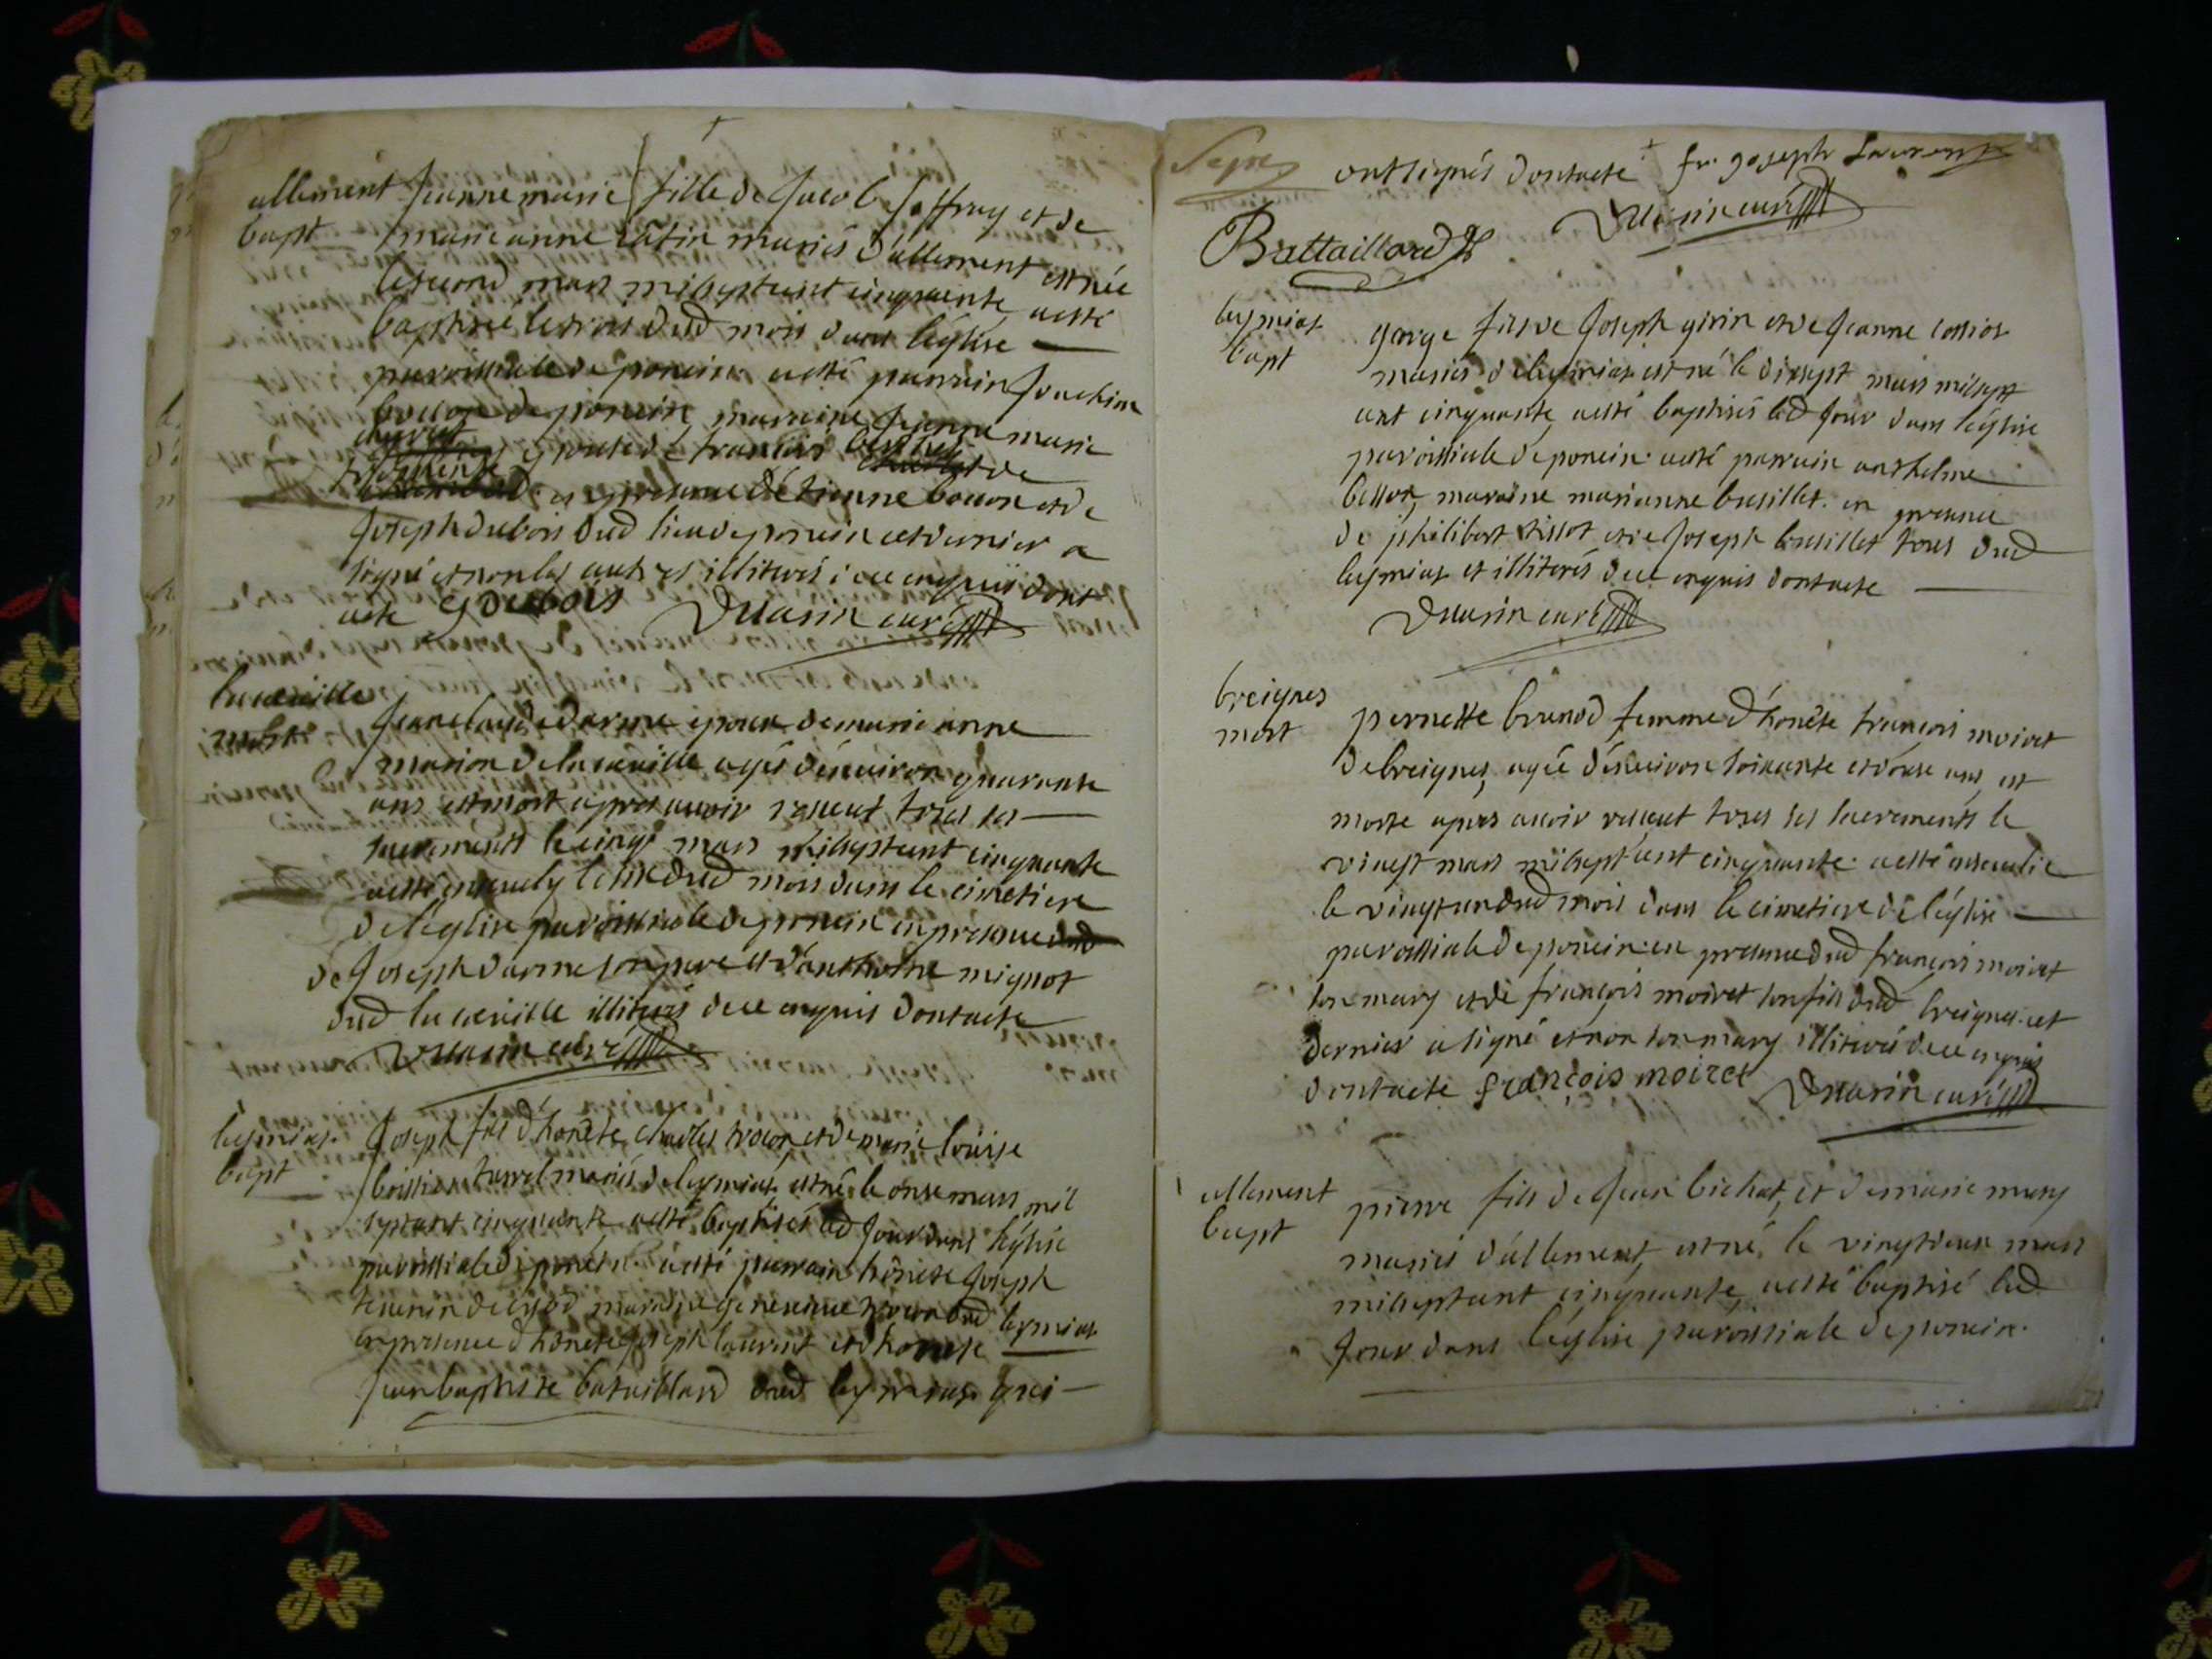 allement
bapt
Jeanne marie fille de Jacob Joffray et de
marie anne mariés d'allement est née
le second mars mil sept cent cinquante, a esté
baptisée le trois dud mois dans l'église
paroissiale de poncin a esté parrain Joachim
bouvon de poncin, maraine Jeanne marie
épouse de francois
en presence d'étienne bouvon et de
Joseph dubois dud lieu de poncin cet dernier a
signé et non les autres illiterés de ce enquis dont
acte G Dubois Vuarin curé
la cueille
mort
Jean claude darme époux de marie anne
marion de la cueille agé d'environ quarante
ans est mort apres avoir receut tous ses
sacrements le cinq mars mil sept cent cinquante
a esté ensevely le six dud mois dans le cimetiere
de l'église paroissiale de poncin en presence
de Joseph darme son pere et d'anthoine mignot
dud la cueille illiterés de ce enquis dont acte
Vuarin curé
leymiat
bapt
Joseph fils d'honête charles trocon et de marie louise
mariés de leymiat est né le onze mars mil
sept cent cinquante, a esté baptisé led Jour dans l'église
paroissiale de poncin. a esté parrain honête Joseph
tevenin de maraine genevieve trocon dud leymiat
en presence d'honête Joseph laurent et d'honête
Jean baptiste bataillard dud leymiat qui
ont signés dont acte fr. Joseph Laurent
Vuarin curé
Battaillard
leymiat
bapt
george fils de Joseph girin et de Jeanne cossiat
mariés de leymiat est né le dixsept mars mil sept
cent cinquante, a esté baptisés led Jour dans l'église
paroissiale de poncin. a esté parrain anthelme
besson, maraine marianne bresillet. en presence
de philibert tissot et de Joseph bresillet tous dud
leymiat et illiterés de ce enquis dont acte
Vuarin curé
breignes
mort
pernette brunod femme d'honête françois moiret
de breignes, agée d'environ soixante et douse ans, est
morte apres avoir receut tous ses sacrements le
vingt mars mil sept cent cinquante. a esté ensevelie
le vingt un dud mois dans le cimetiere de l'église
paroissiale de poncin. en presence dud françois moiret
son mary et de françois moiret son fils dud breignes. cet
dernier a signé et non son mary illiteré de ce enquis
dont acte françois moiret Vuarin curé
allement
bapt
pierre fils de Jean bichat, et de marie mary
mariés d'allement, est né, le vingt deux mars
mil sept cent cinquante, a esté baptisé led
Jour dans l'église paroissiale de poncin.